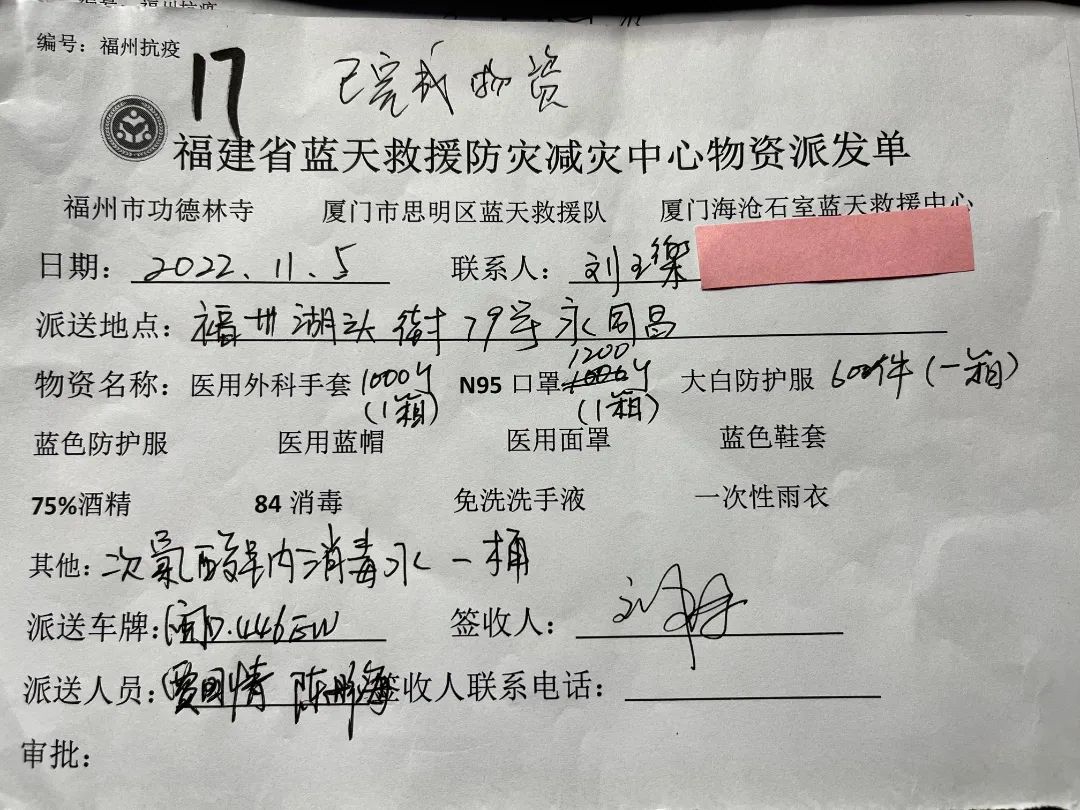 编号：福州抗疫
17 已完成物资
福建省蓝天救援防灾减灾中心物资派发单
福州市功德林寺 厦门市思明区蓝天救援队 厦门海沧石室蓝天救援中心
日期：2022.11.5 联系人：刘玉
派送地点：福州湖头街79号永同昌
1200
物资名称：医用外科手套 1000个 N95 口罩 1000个 大白防护服 60件（一箱）
（1箱） （1箱）
蓝色防护服 医用蓝帽 医用面罩 蓝色鞋套
75%酒精 84 消毒 免洗洗手液 一次性雨衣
其他：次氯酸钠消毒水一桶
派送车牌：闽D.446EW 签收人：
派送人员：贾国情 陈鹏海 签收人联系电话：
审批：